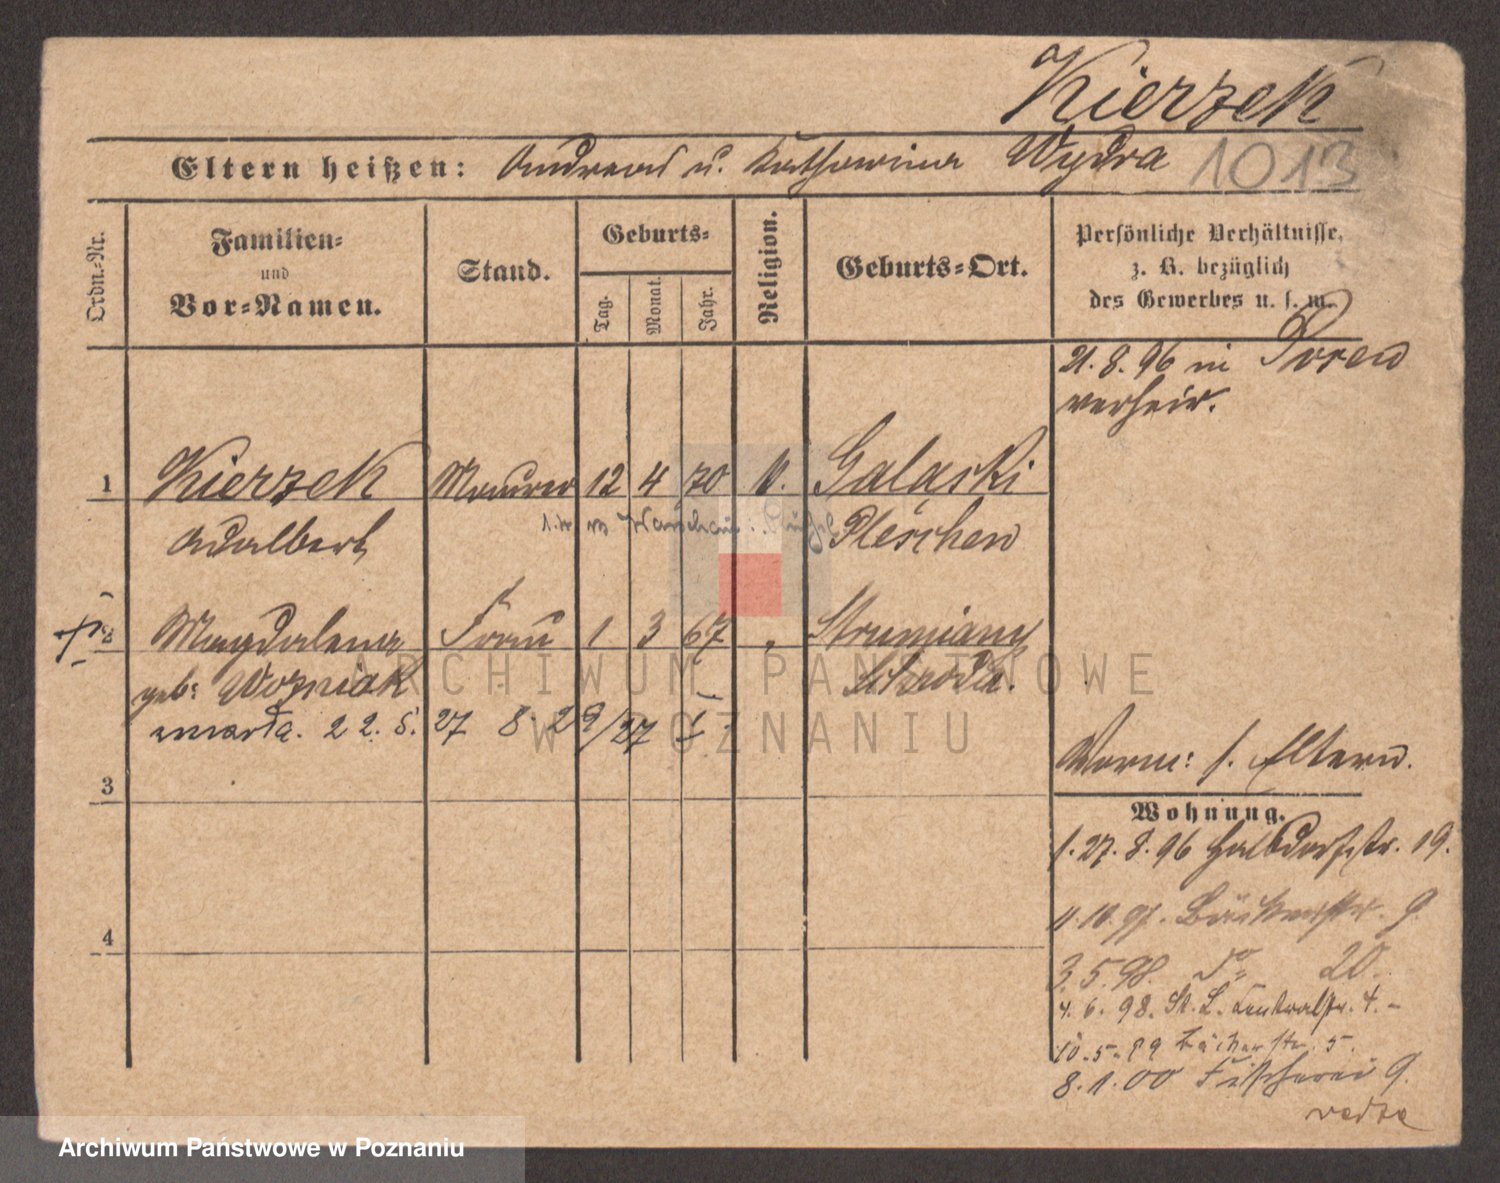 Kierzek
Eltern heißen: Andreas u. Katharina Wydra 1013
Ordn.-Nr.
Familien-
und
Vor-Namen.
Stand.
Geburts-
Tag.
Monat.
Jahr.
Religion.
Geburts-Ort.
Persönliche Verhältnisse,
z. B. bezüglich
des Gewerbes u. s. w.
21. 8. 96 in Posen
verheir.
1 Kierzek Maurer 12 4 70 k. Galaski
Adalbert Pleschen
2 Magdalena Frau 1 3 67 " Strumiany
geb: Wozniak Schroda.
umarła. 22. 5. 27 8. 29/27
3
4
Vorm: s. Eltern.
Wohnung.
1. 27. 8. 96 Halbdorfstr. 19.
11. 10. 97. Bäckerstr. 9.
3. 5. 98. do 20.
4. 6. 98. St. L. Centralstr. 4. -
10. 5. 99 Bäckerstr. 5.
8. 1. 00 Fischerei 9.
ARCHIWUM PAŃSTWOWE
W POZNANIU
Archiwum Państwowe w Poznaniu